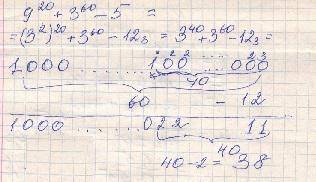 9^20 + 3^60 - 5 =
= (3^2)^20 + 3^60 - 12_3 = 3^40 + 3^60 - 12_3 =
1000 ......... 100 .... 000
40
60 - 12
1000 ......... 022 11
40
40 - 2 = 38